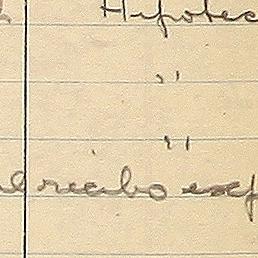 Hipotec
"
"
recibo exp